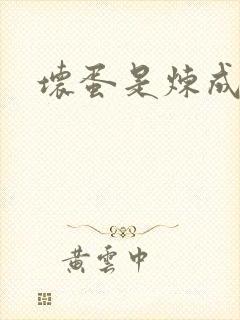 壞蛋是煉成
黃雲中